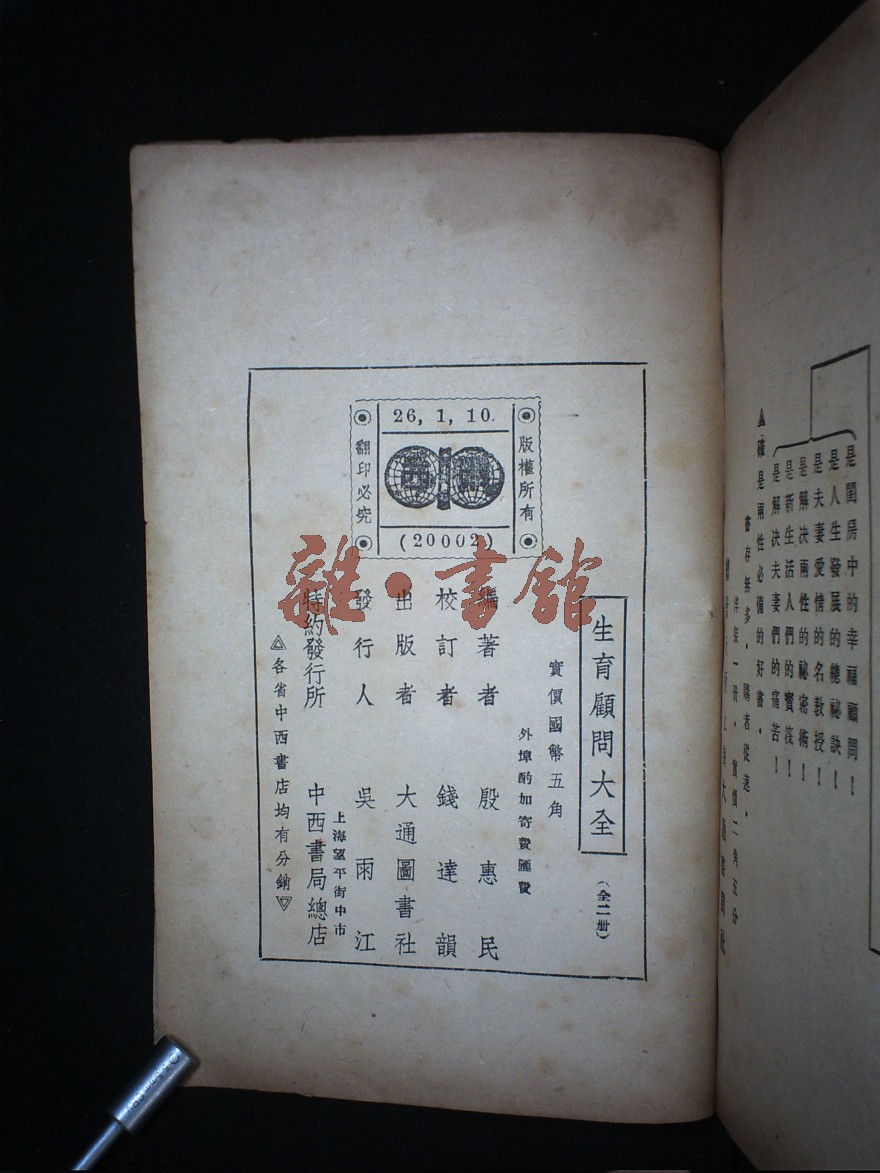 是閨房中的幸福顧問！
是人生發展的總祕訣！
是夫妻愛情的名教授！
是解決兩性的祕密術！
是新生活人們的寶筏！
是解決夫妻們的痛苦！
▲確是兩性必備的好書。
書存無多。購者從速。
洋裝一册。實價二角五分
26, 1, 10.
版權所有
翻印必究
(20002)
生育顧問大全
(全二册)
實價國幣五角
外埠酌加寄費匯費
編著者 殷惠民
校訂者 錢達韻
出版者 大通圖書社
發行人 吳雨江
上海望平街中市
特約發行所 中西書局總店
△各省中西書店均有分銷▽
雜·書館